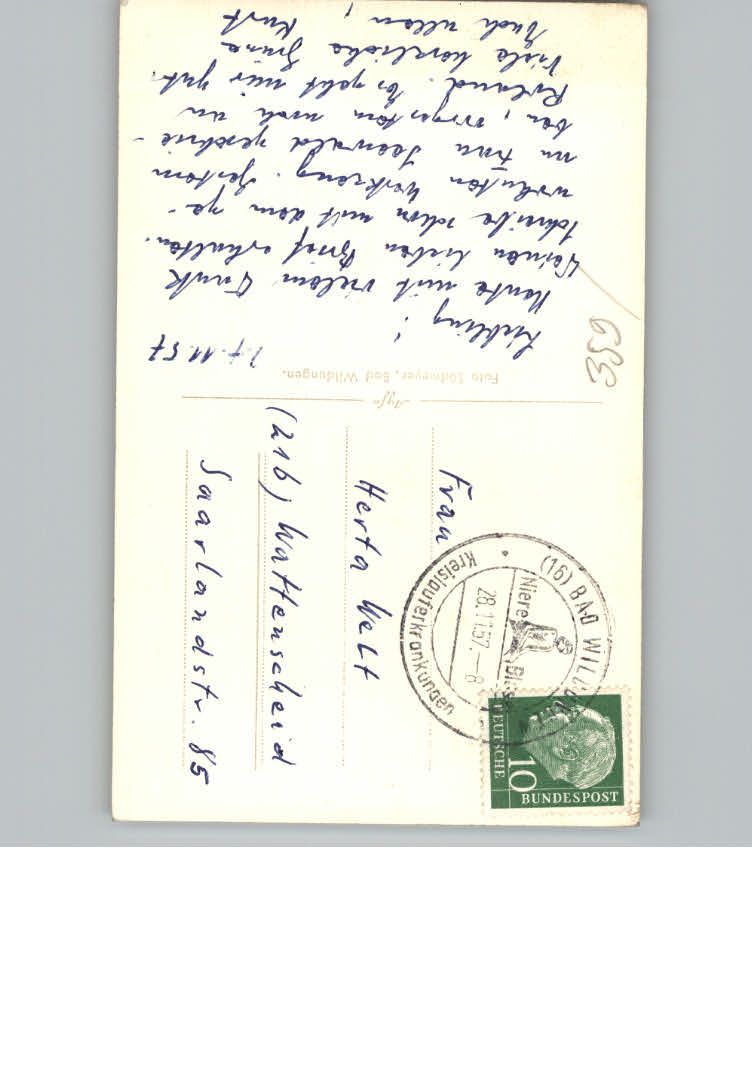 27.11.57
Liebling!
Heute mit vielem Dank
Deinen lieben Brief erhalten.
Schreibe schon mit dem ge-
wohnten Werkzeug. Gestern
an Frau Seewald geschrie-
ben, vorgestern noch an
Roland. Es geht mir gut.
Viele herzliche Grüße
Euch allen, Kurt
Foto Südmeyer, Bad Wildungen.
Agfa
Frau
Herta Welt
(21b) Wattenscheid
Saarlandstr. 85
(16) BAD
Niere
28.11.57.-8
Kreislauferkrankungen
DEUTSCHE
10
BUNDESPOST
359